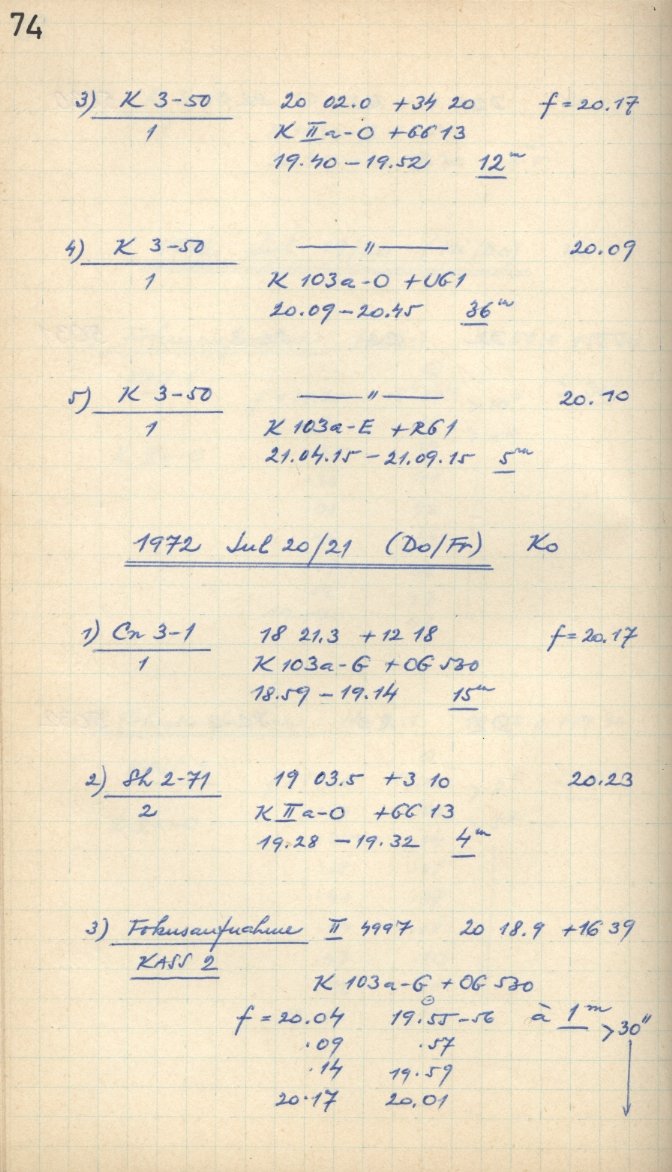 74
3) K 3-50 20 02.0 +34 20 f = 20.17
1 K IIa-O + GG 13
19.40 - 19.52 12m
4) K 3-50 —— " —— 20.09
1 K 103a-O + UG1
20.09 - 20.45 36m
5) K 3-50 —— " —— 20.10
1 K 103a-E + RG1
21.04.15 - 21.09.15 5m
1972 Jul 20/21 (Do/Fr) Ko
1) Cn 3-1 18 21.3 +12 18 f = 20.17
1 K 103a-G + OG 530
18.59 - 19.14 15m
2) Sh 2-71 19 03.5 +3 10 20.23
2 K IIa-O + GG 13
19.28 - 19.32 4m
3) Fokusaufnahme II 4997 20 18.9 +16 39
KASS 2
K 103a-G + OG 530
f = 20.04 19.55-56 à 1m > 30"
.09 .57
.14 19.59
20.17 20.01